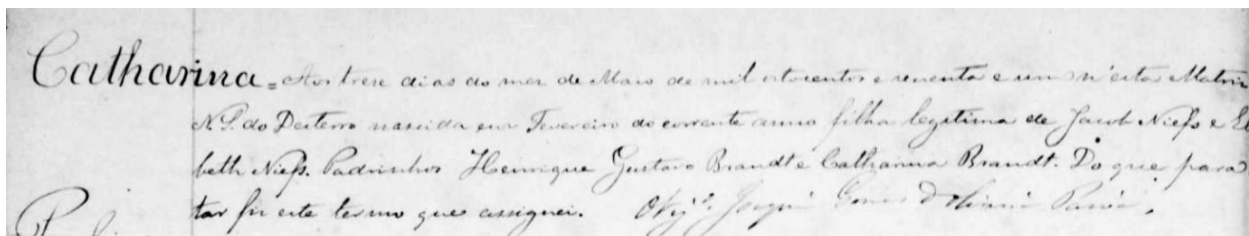 Catharina = Aos treze dias do mez de Maio de mil oitocentos e secenta e um n'esta Matriz
N. S. do Desterro nascida em Fevereiro do corrente anno filha legitima de Jacob Niess e E
beth Niess. Padrinhos Henrique Gustavo Brandt e Catharina Brandt. Do que para
tar fiz este termo que assignei. O Vigr.º Joaquim Gomes d'Oliveira Paiva.